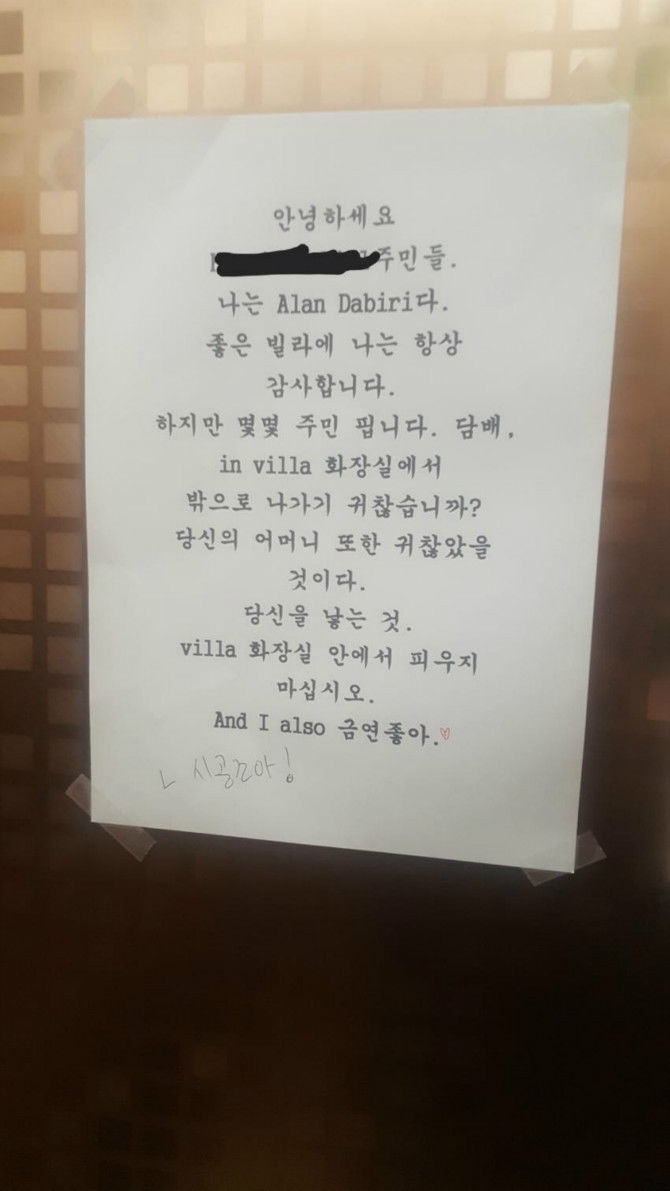 안녕하세요
주민들.
나는 Alan Dabiri다.
좋은 빌라에 나는 항상
감사합니다.
하지만 몇몇 주민 핍니다. 담배,
in villa 화장실에서
밖으로 나가기 귀찮습니까?
당신의 어머니 또한 귀찮았을
것이다.
당신을 낳는 것.
villa 화장실 안에서 피우지
마십시오.
And I also 금연좋아.♡
ㄴ 시골꼬아!